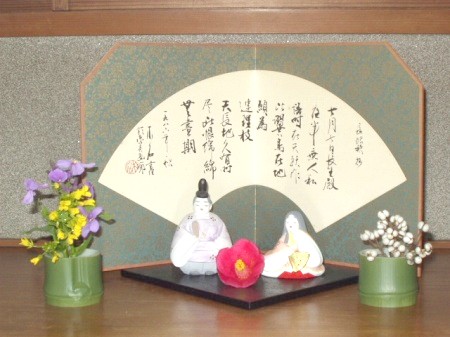 七月七日長生殿
夜半無人私
語時在天願作
比翼鳥在地
願為
連理枝
天長地久有時
尽此恨綿綿
無盡期